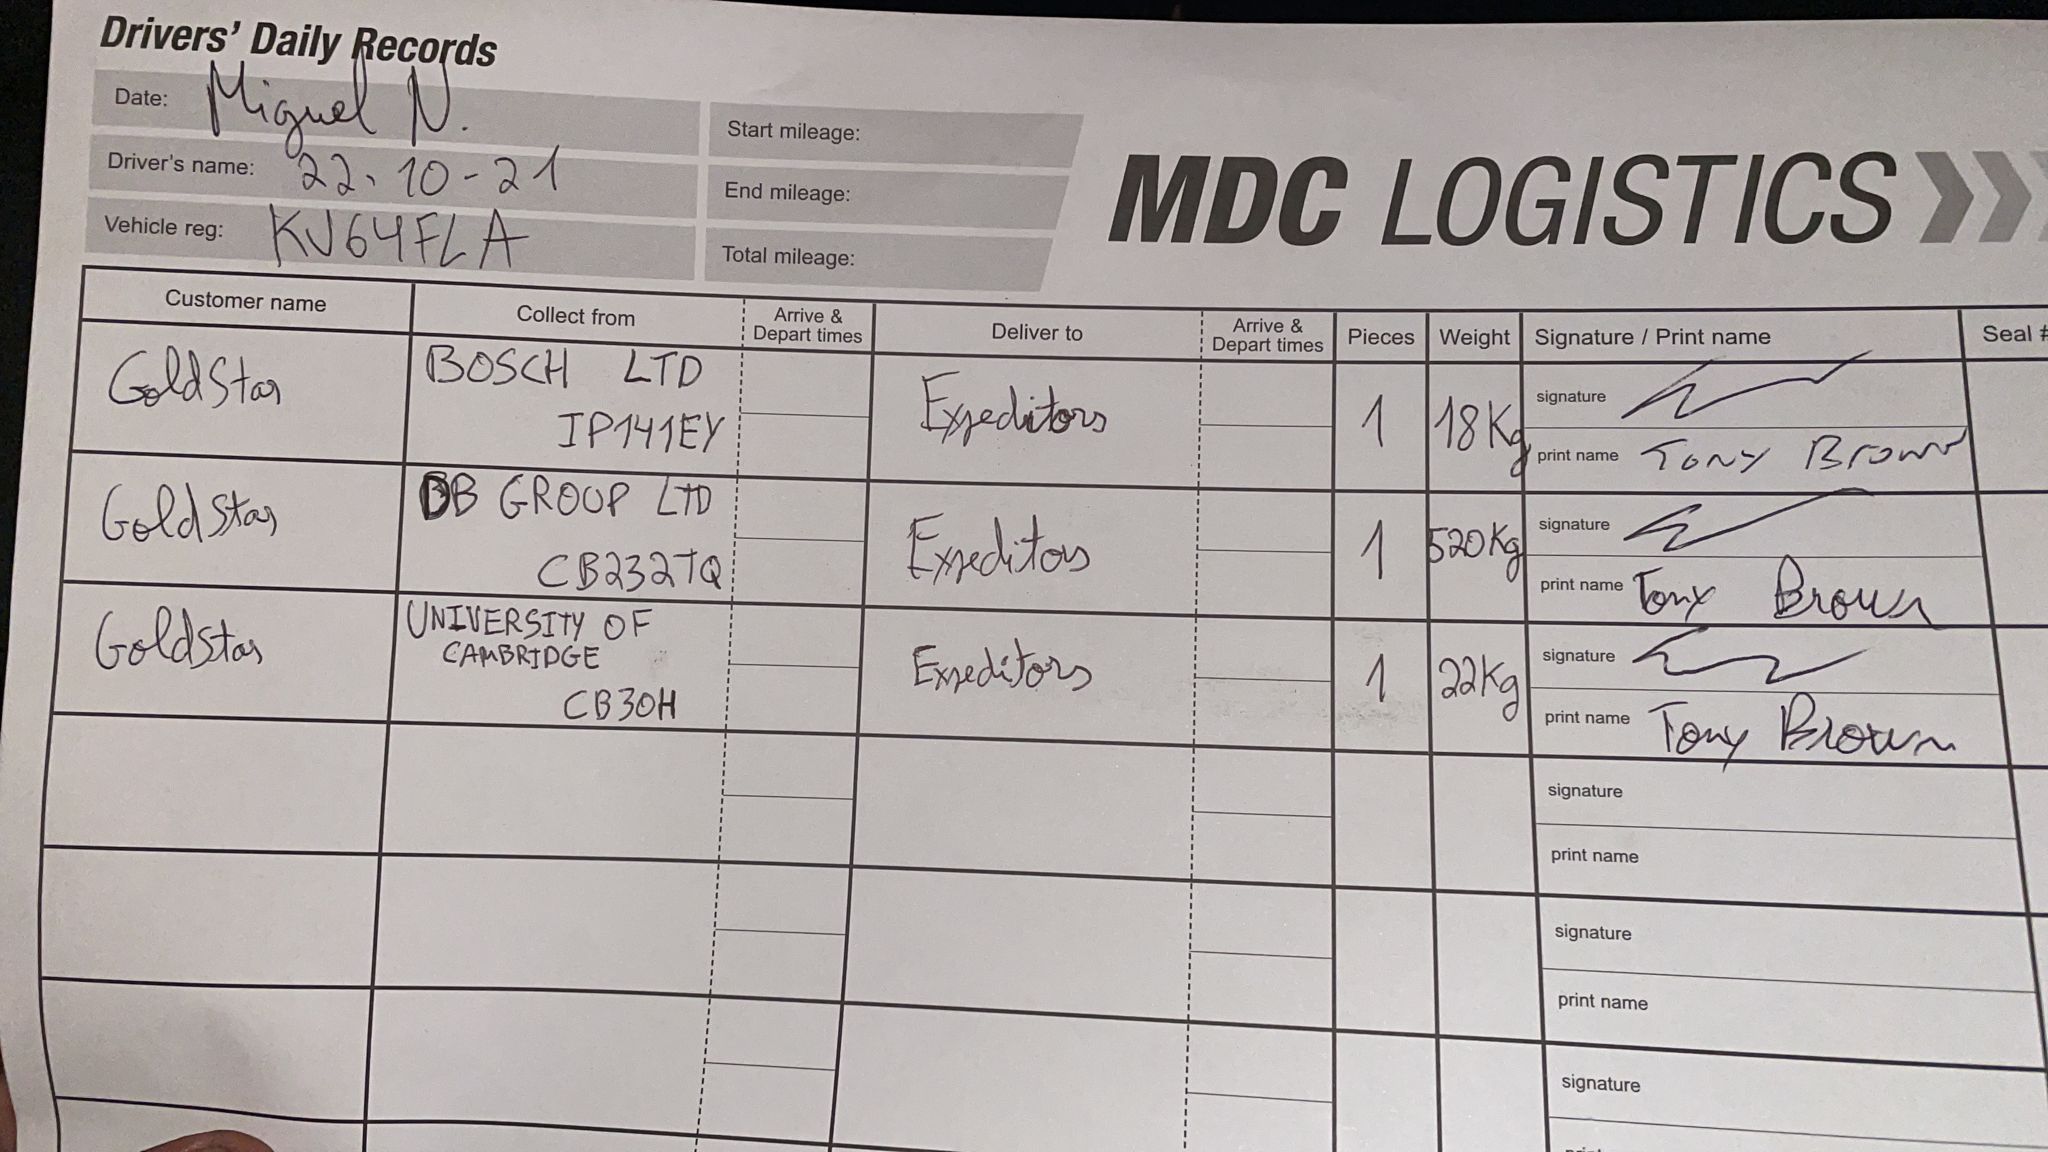 Drivers' Daily Records
Date: Miguel N.
Driver's name: 22.10-21
Vehicle reg: KV64FLA
Start mileage:
End mileage:
Total mileage:
MDC LOGISTICS
Customer name
Collect from
Arrive &
Depart times
Deliver to
Arrive &
Depart times
Pieces
Weight
Signature / Print name
Seal #
GoldStar
BOSCH LTD
IP141EY
Expeditors
1
18Kg
signature
print name Tony Brown
GoldStar
DB GROUP LTD
CB232TQ
Expeditors
1
520Kg
signature
print name Tony Brown
GoldStar
UNIVERSITY OF
CAMBRIDGE
CB30H
Expeditors
1
22Kg
signature
print name Tony Brown
signature
print name
signature
print name
signature